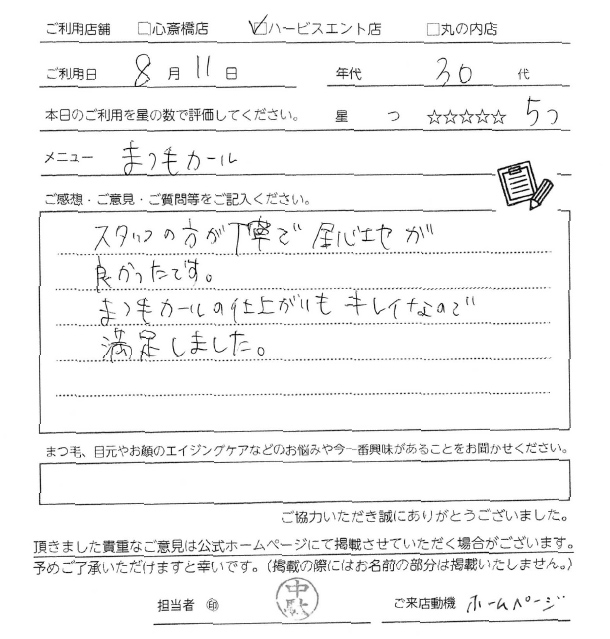 ご利用店舗 □心斎橋店 ☑ハービスエント店 □丸の内店
ご利用日 8 月 11 日 年代 30 代
本日のご利用を星の数で評価してください。 星 つ ☆☆☆☆☆ 5つ
メニュー まつ毛カール
ご感想・ご意見・ご質問等をご記入ください。
スタッフの方が丁寧で 居心地が
良かったです。
まつ毛カールの仕上がりも キレイなので
満足しました。
まつ毛、目元やお顔のエイジングケアなどのお悩みや今一番興味があることをお聞かせください。
ご協力いただき誠にありがとうございました。
頂きました貴重なご意見は公式ホームページにて掲載させていただく場合がございます。
予めご了承いただけますと幸いです。(掲載の際にはお名前の部分は掲載いたしません。)
担当者 ㊞ 中 ご来店動機 ホームページ